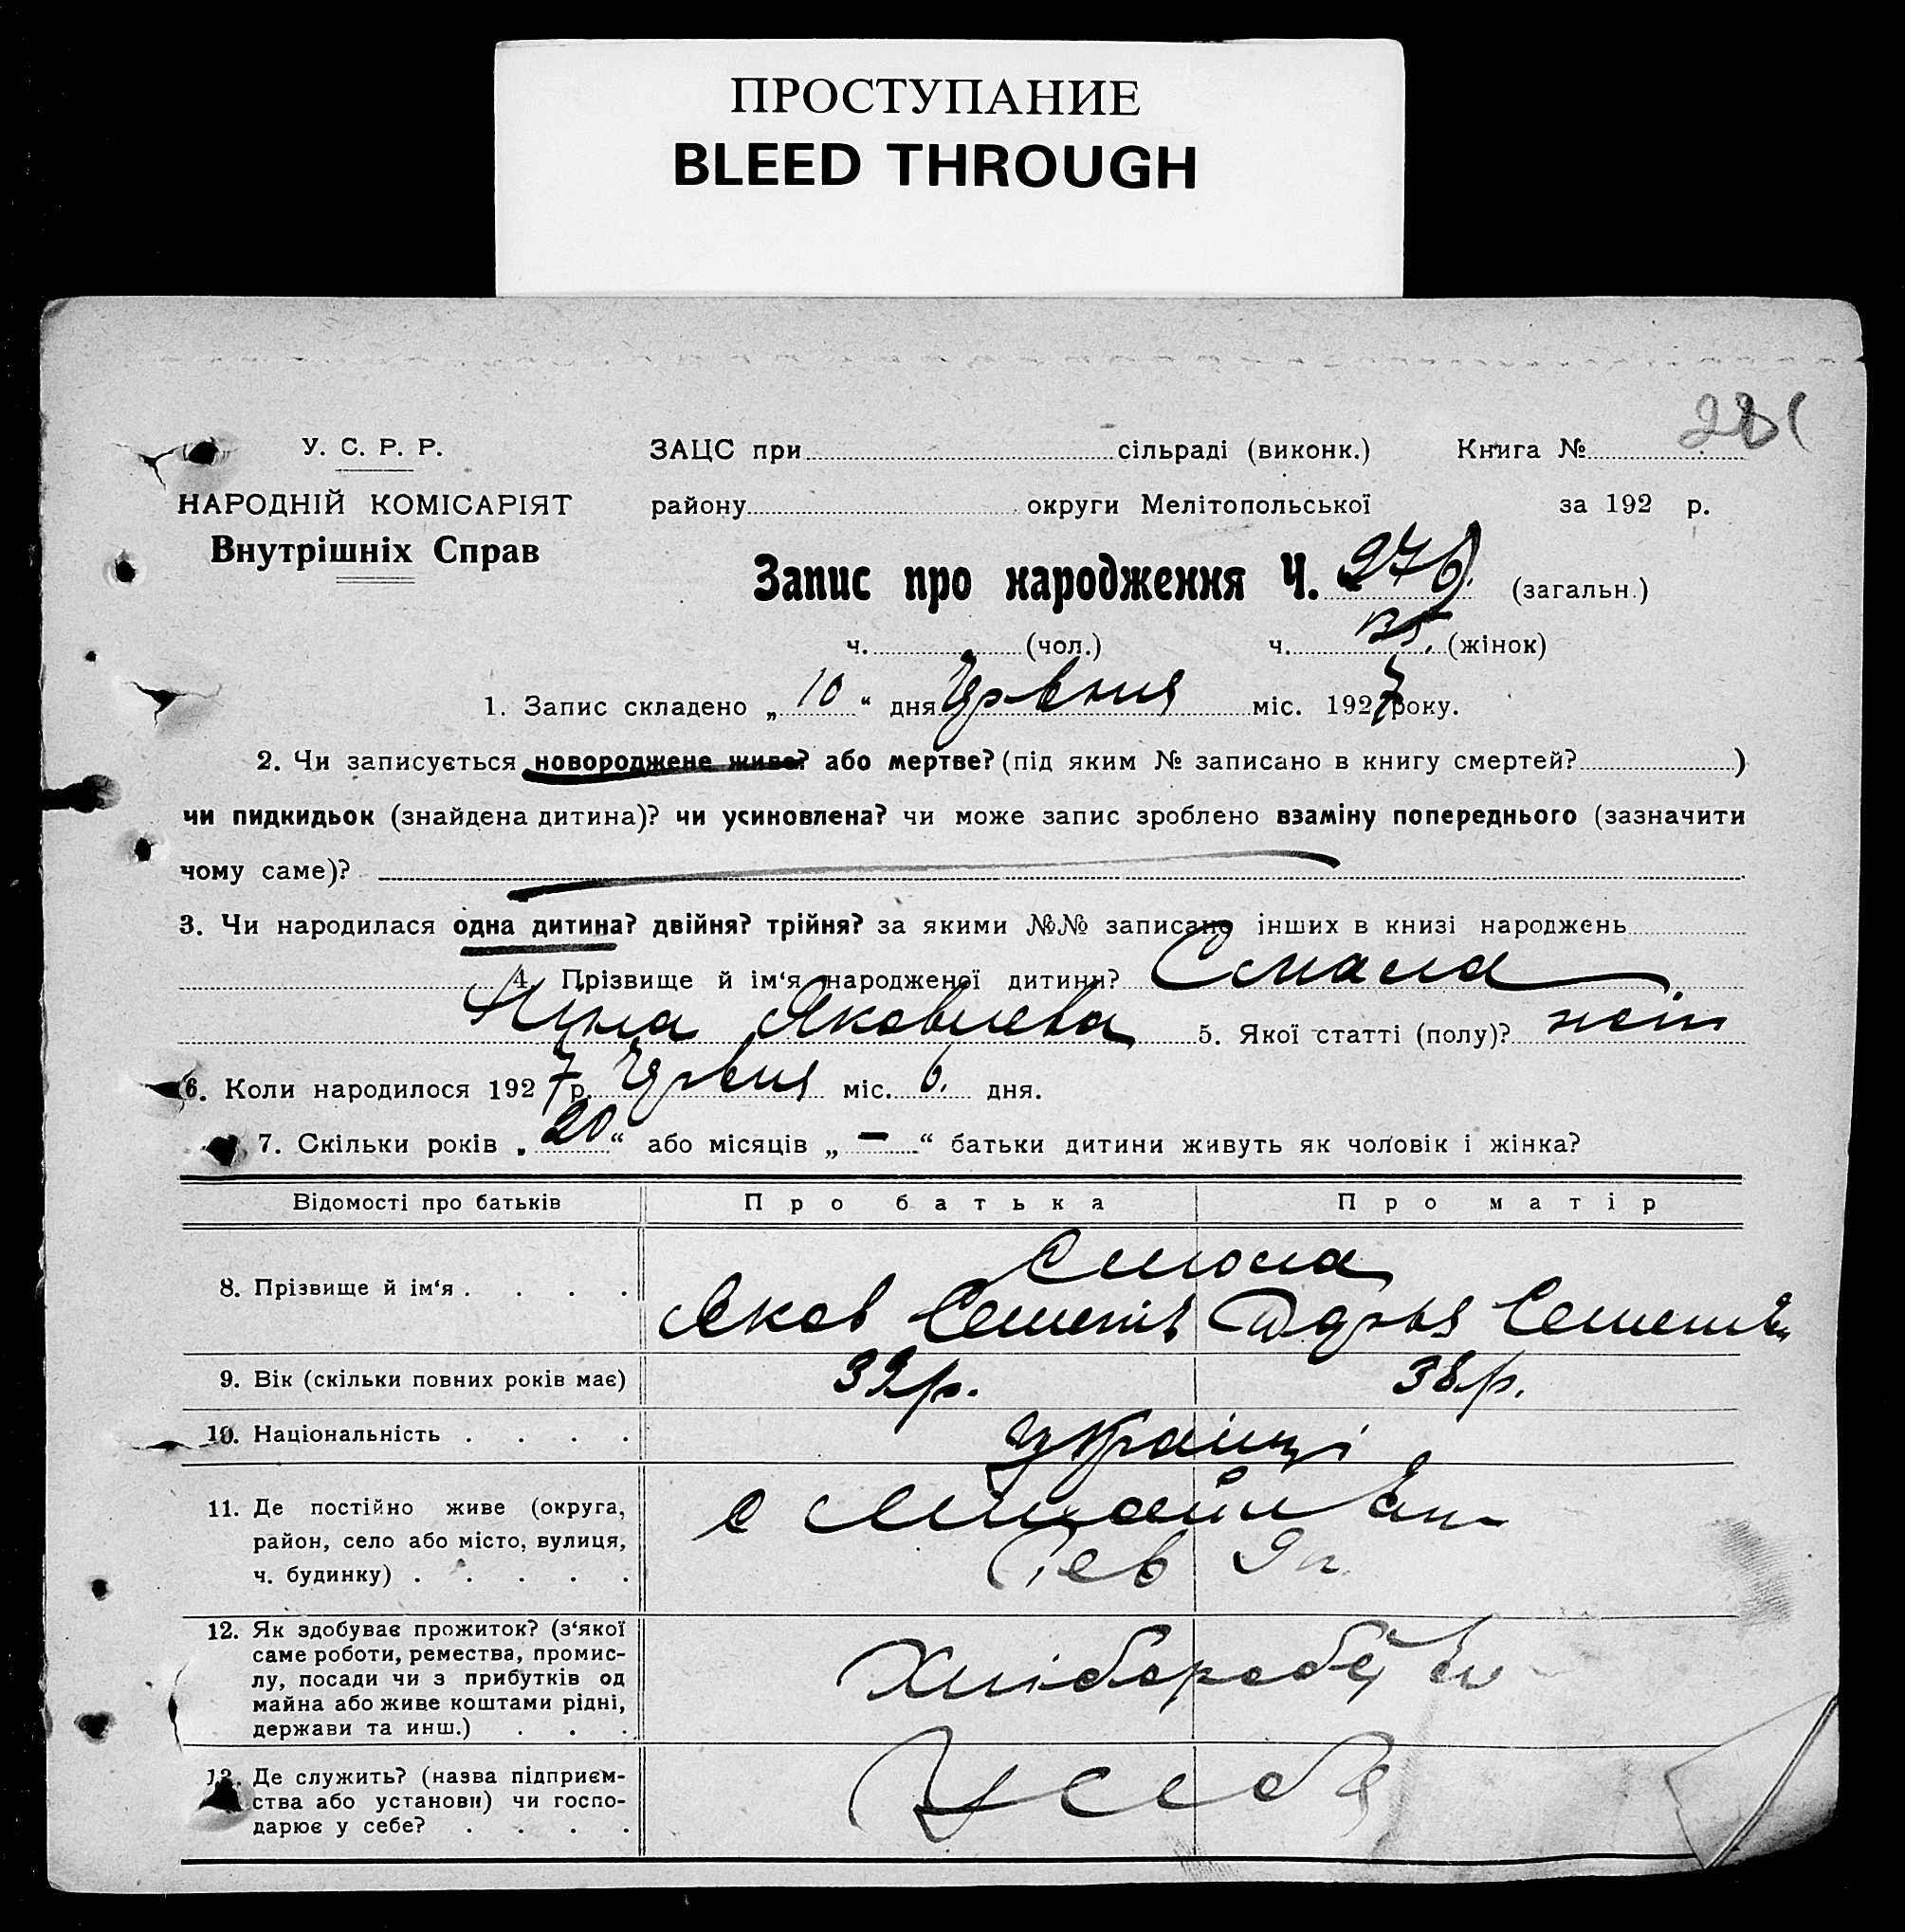 ПРОСТУПАНИЕ
BLEED THROUGH
281
У. С. Р. Р.
НАРОДНІЙ КОМІСАРІЯТ
Внутрішніх Справ
ЗАЦС при сільраді (виконк.) Книга №
району округи Мелітопольської за 192 р.
Запис про народження Ч. 276 (загальн.)
ч. (чол.) ч. (жінок)
1. Запис складено „ 10 “ дня Червня міс. 1927 року.
2. Чи записується новороджене живе? або мертве? (під яким № записано в книгу смертей? )
чи пидкидьок (знайдена дитина)? чи усиновлена? чи може запис зроблено взаміну попереднього (зазначити
чому саме)?
3. Чи народилася одна дитина? двійня? трійня? за якими №№ записано інших в книзі народжень
4. Прізвище й ім‘я народженої дитини? Смола
Яковлева 5. Якої статті (полу)?
6. Коли народилося 1927 р. Червня міс. 6. дня.
7. Скільки років „ 20 “ або місяців „ — “ батьки дитини живуть як чоловік і жінка?
Відомості про батьків Про батька Про матір
8. Прізвище й ім‘я . . . . Смола
Яков Дарья
9. Вік (скільки повних років має) 39р. 38р.
10. Національність . . . . Українці
11. Де постійно живе (округа,
район, село або місто, вулиця,
ч. будинку) . . . . .
с
12. Як здобуває прожиток? (з‘якої
саме роботи, ремества, промис-
лу, посади чи з прибутків од
майна або живе коштами рідні,
держави та инш.) . . .
Хлібороб
13. Де служить? (назва підприєм-
ства або установи) чи госпо-
дарює у себе? . . . .
У себе